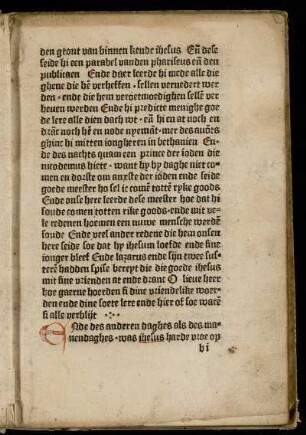 den gront van binnen kende ihesus Eñ dese
seide hi een parabel vanden phariseus eñ den
publicaen Ende daer leerde hi mede alle die
ghene die hē verheffen · sellen vernedert wer
den · ende die hem veroetmoedighen sellē ver
heuen werden Ende hi predicte menighe goe
de lere alle dien dach wt · eñ hi en at noch en
dranc noch hē en node nyemāt · mer des auōts
ghinc hi mitten iongheren in bethanien En-
de des nachts quam een prince der ioden die
nicodemus hiet · want hy by daghe niet co-
men en dorste om anxste der ioden ende seide
goede meester ho sel ic comē totten ryke goods
Ende onse here leerde dese meester hoe dat hi
soude comen totten rike goods · ende mit ve-
le redenen hoemen een nuwe mensche wordē
soude Ende veel ander redene die hem onsen
here seide soe dat hy ihesum loefde ende sine
ionger bleef Ende lazarus ende sijn twee sus-
terē hadden spise bereyt die die goede ihesus
mit sine vrienden at ende dranc O lieue heer
hoe gaerne hoerden si dine vriendelike woer-
den ende dine soete lere ende hier of soe warē
si alle verblijt
Ende des anderen daghes als des ma-
nendaghes · was ihesus harde vroe op
bi